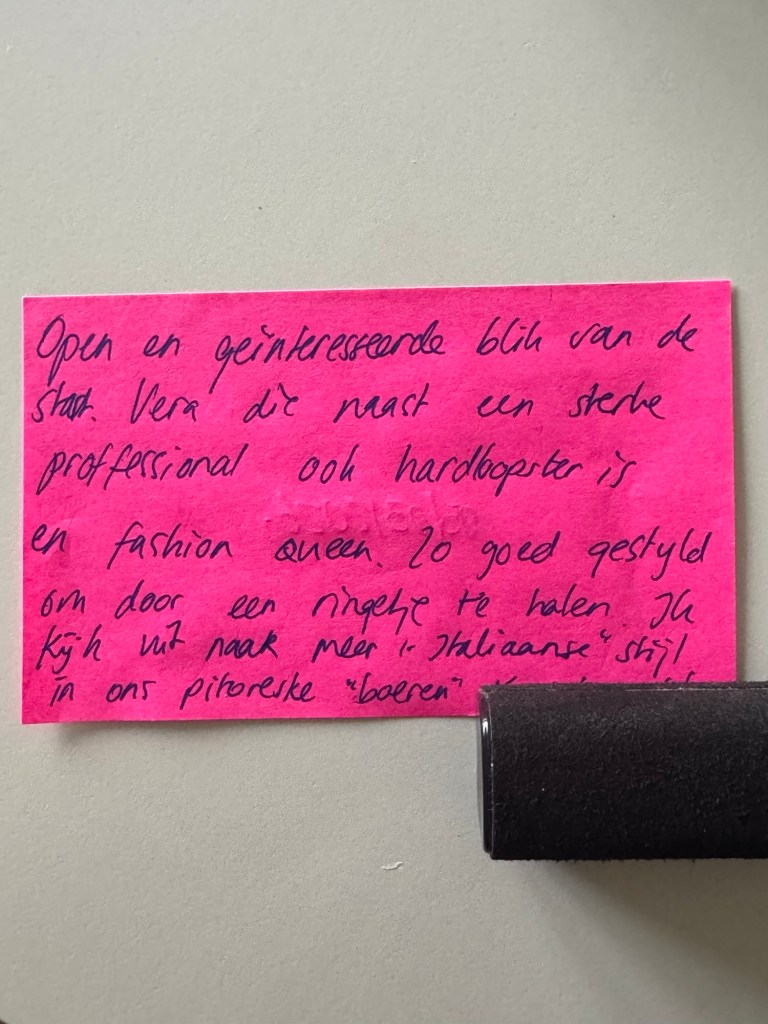 Open en geïnteresseerde blik van de
start. Vera die naast een sterke
proffessional ook hardloopster is
en fashion queen. Zo goed gestyld
om door een ringetje te halen. Ik
kijk uit naar meer "Italiaanse" stijl
in ons pitoreske "boeren"